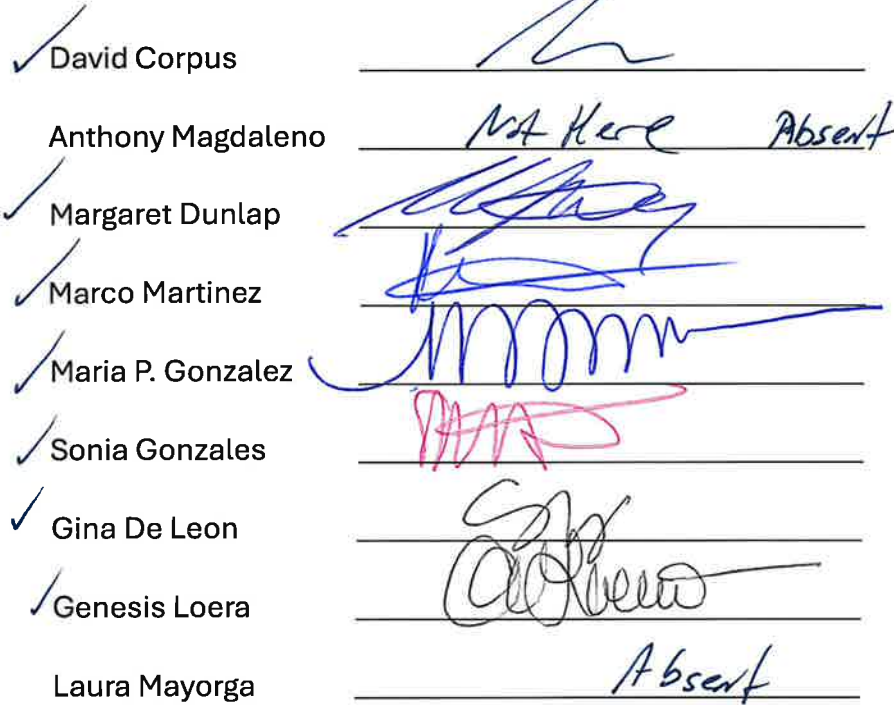 David Corpus
Anthony Magdaleno Not Here Absent
Margaret Dunlap
Marco Martinez
Maria P. Gonzalez
Sonia Gonzales
Gina De Leon
Genesis Loera
Laura Mayorga Absent